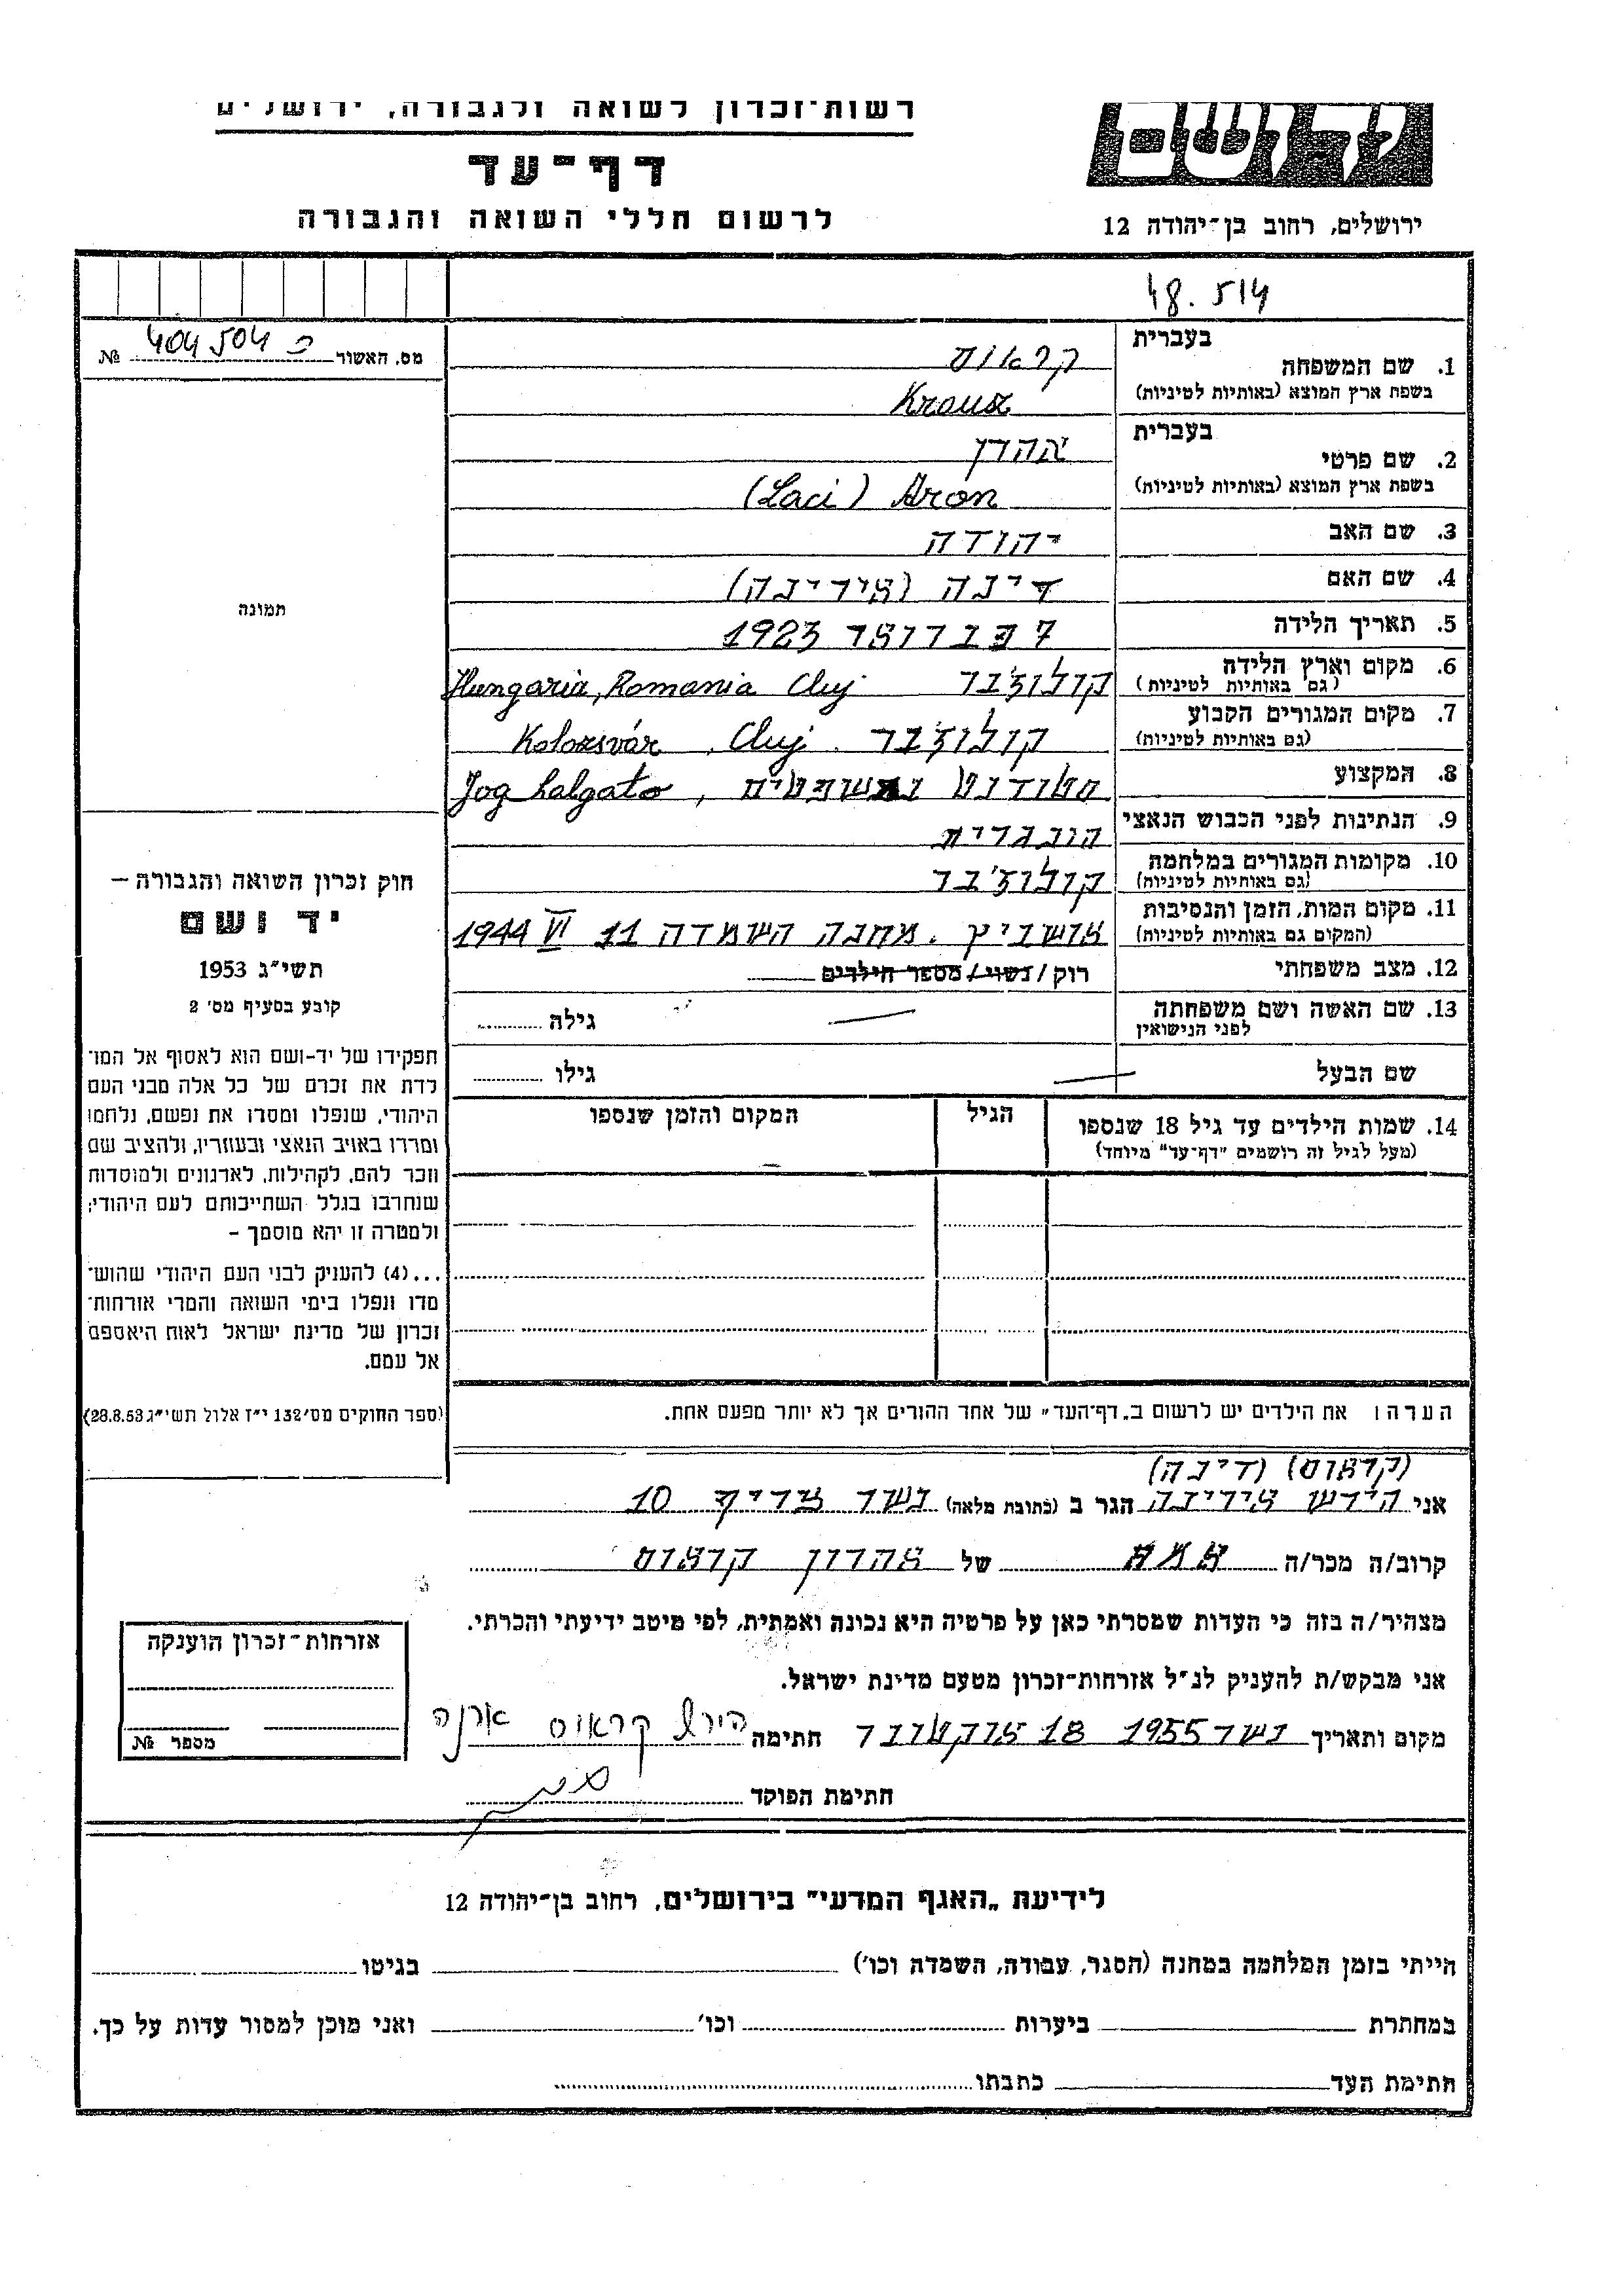 רשות־זכרון לשואה ולגבורה, ירושלים
דף־עד
לרשום חללי השואה והגבורה
ירושלים, רחוב בן־יהודה 12
48. 514
מס. האשור 404504 כ №
תמונה
בעברית
1. שם המשפחה קראוס
בשפת ארץ המוצא (באותיות לטיניות) Krausz
בעברית
2. שם פרטי אהרן
בשפת ארץ המוצא (באותיות לטיניות) (Laci) Aron
3. שם האב יהודה
4. שם האם דינה (אירינה)
5. תאריך הלידה 7 פברואר 1923
6. מקום וארץ הלידה קולוז'בר Hungaria, Romania Cluj
(גם באותיות לטיניות)
7. מקום המגורים הקבוע קולוז'בר Kolozsvár, Cluj
(גם באותיות לטיניות)
8. המקצוע סטודנט משפטים, Jog halgato
9. הנתינות לפני הכבוש הנאצי הונגרית
10. מקומות המגורים במלחמה קולוז'בר
(גם באותיות לטיניות)
11. מקום המות, הזמן והנסיבות אושביץ. מחנה השמדה 11 VI 1944
(המקום גם באותיות לטיניות)
12. מצב משפחתי רוק / נשוי / מספר הילדים
13. שם האשה ושם משפחתה גילה
לפני הנישואין
שם הבעל גילו
14. שמות הילדים עד גיל 18 שנספו הגיל המקום והזמן שנספו
(מעל לגיל זה רושמים "דף־עד" מיוחד)
חוק זכרון השואה והגבורה –
יד ושם
תשי"ג 1953
קובע בסעיף מס' 2
תפקידו של יד-ושם הוא לאסוף אל המו־
לדת את זכרם של כל אלה מבני העם
היהודי, שנפלו ומסרו את נפשם, נלחמו
ומרדו באויב הנאצי ובעוזריו, ולהציב שם
וזכר להם, לקהילות, לארגונים ולמוסדות
שנחרבו בגלל השתייכותם לעם היהודי;
ולמטרה זו יהא מוסמך –
...(4) להעניק לבני העם היהודי שהוש־
מדו ונפלו בימי השואה והמרי אזרחות־
זכרון של מדינת ישראל לאות היאספם
אל עמם.
(ספר החוקים מס' 132 י"ז אלול תשי"ג 28.8.53)
הערה: את הילדים יש לרשום ב„דף־העד" של אחד ההורים אך לא יותר מפעם אחת.
(קראוס) (דינה)
אני הירש אירינה הגר ב (כתובת מלאה) נשר צריף 10
קרוב/ה מכר/ה אמא של אהרון קראוס
מצהיר/ה בזה כי העדות שמסרתי כאן על פרטיה היא נכונה ואמתית, לפי מיטב ידיעתי והכרתי.
אני מבקש/ת להעניק לנ"ל אזרחות־זכרון מטעם מדינת ישראל.
מקום ותאריך נשר 18 אוקטובר 1955 חתימה הירש קראוס ארנה
חתימת הפוקד
אזרחות־זכרון הוענקה
מספר №
לידיעת „האגף המדעי" בירושלים, רחוב בן־יהודה 12
הייתי בזמן המלחמה במחנה (הסגר, עבודה, השמדה וכו') בגיטו
במחתרת ביערות וכו' ואני מוכן למסור עדות על כך.
חתימת העד כתבתו